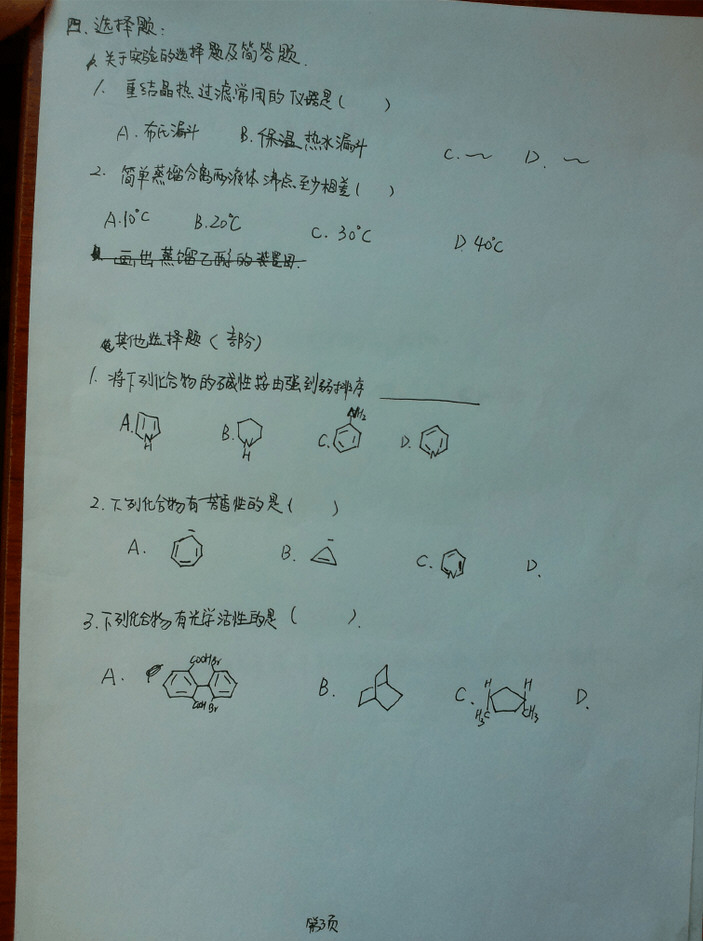 四、选择题:
关于实验的选择题及简答题.
1. 重结晶热过滤常用的仪器是( )
A. 布氏漏斗 B. 保温热水漏斗 C. ~ D. ~
2. 简单蒸馏分离两液体沸点至少相差( )
A. 10℃ B. 20℃ C. 30℃ D. 40℃
画出蒸馏乙醇的装置图.
其他选择题(部分)
1. 将下列化合物的碱性按由强到弱排序 ______
A. N H B. N H C. NH2 D. N
2. 下列化合物有芳香性的是( )
A. - B. - C. N D.
3. 下列化合物有光学活性的是( ).
A. COOH Br COOH Br B. C. H H H3C CH3 D.
第3页